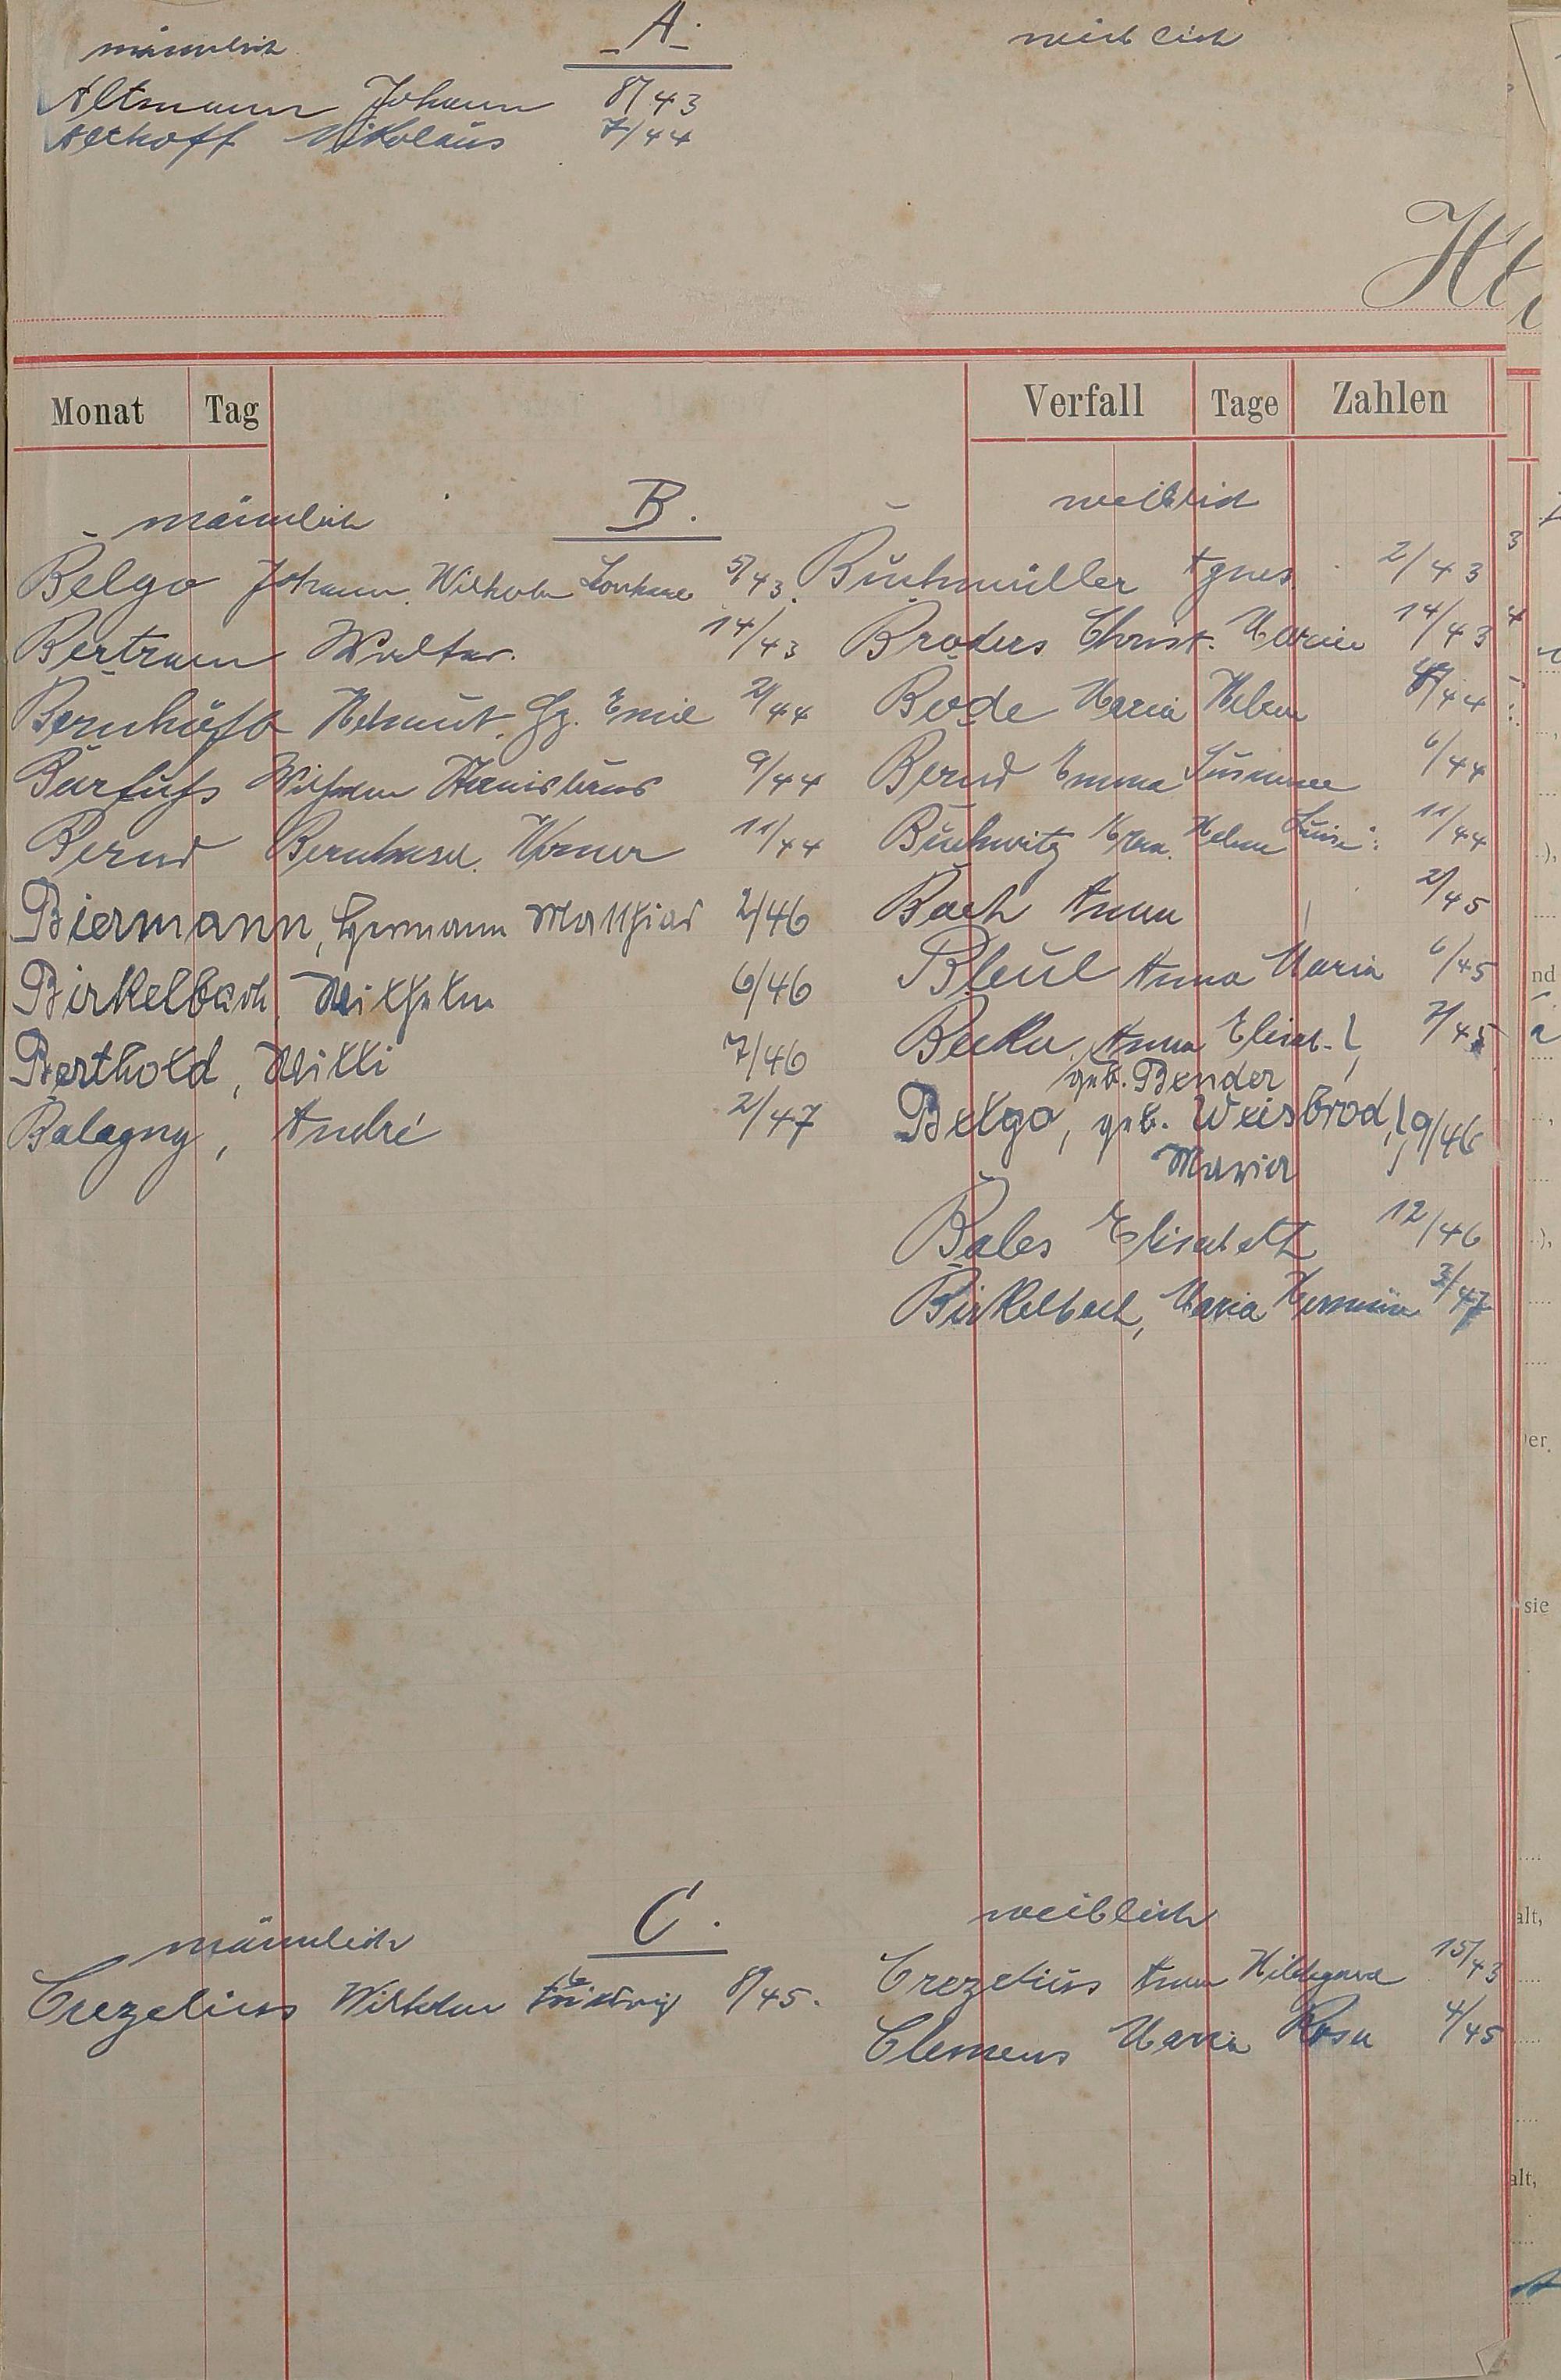 männlich A. weiblich
Altmann Johann 8/43
Althoff Nikolaus 7/44
Monat Tag Verfall Tage Zahlen
männlich B. weiblich
Belgo Johann Wilhelm 5/43
Bertram Walter. 14/43
Helmut. Gg. Emil 2/44
Barfuß Wilhelm Stanislaus 9/44
Bernd Bernhard. Werner 11/44
Biermann, Hermann Matthias 2/46
Birkelbach, Wilhelm 6/46
Berthold, Willi 7/46
Balagny, André 2/47
Buchmüller Agnes. 2/43
Broders Christ. Marie 14/43
Bode Maria Helene /44
Bernd Emma Susanne 6/44
Buchwitz Helene Luise 11/44
Bach Anna 2/45
Bleul Anna Maria 6/45
Becker, Anna Elisab. 7/45
geb. Bender
Belgo, geb. Weisbrod, 9/46
Maria
Bales Elisabeth 12/46
Birkelbach, Maria Hermine 3/47
männlich C. weiblich
Crezelius Wilhelm Ludwig 8/45.
Crezelius Anna Hildegard 15/43
Clemens Maria Rosa 4/45